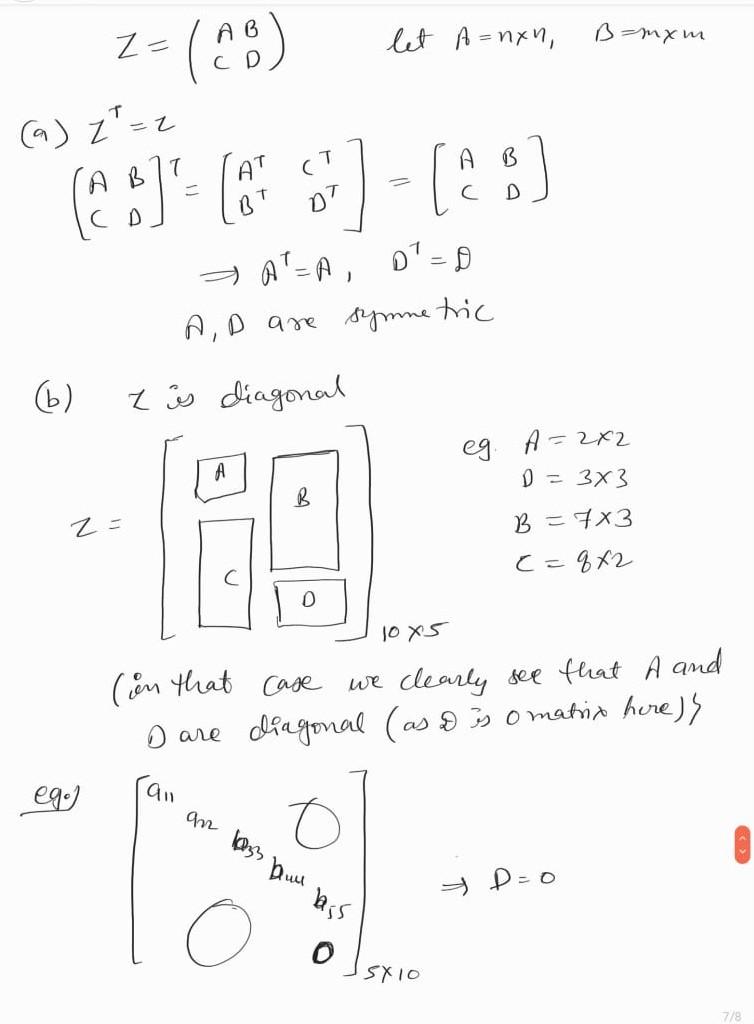 Z = (A B
C D)    let A = n×n, B = m×m
(a) Z^T = Z
[A B
C D]^T = [A^T C^T
B^T D^T] = [A B
C D]
⇒ A^T = A, D^T = D
A, D are symmetric
(b) Z is diagonal
Z = [A B
C D] 10×5
eg. A = 2×2
D = 3×3
B = 7×3
C = 8×2
(in that case we clearly see that A and
D are diagonal (as D is 0 matrix here)}
eg.)
[a11
a22
b33
b44
b55
0
0
0] 5×10
⇒ D = 0
7/8